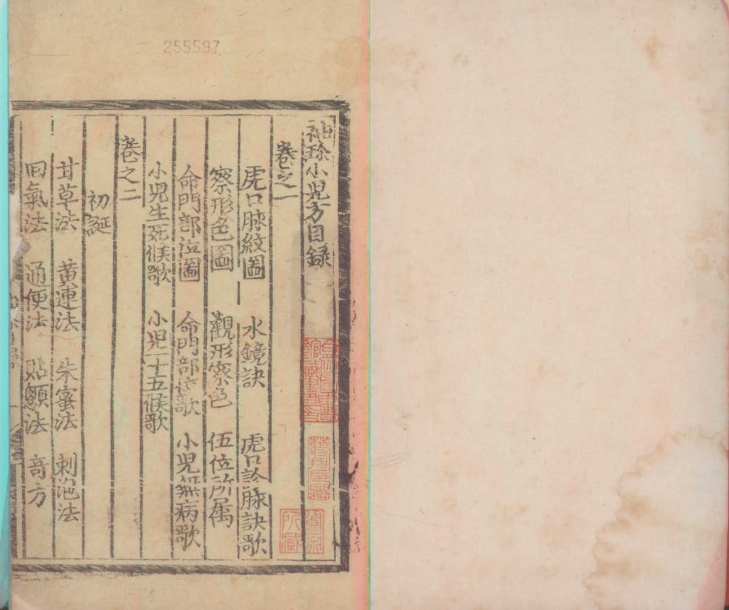 255597
袖珍小兒方目録
卷之一
虎口脉紋圖 水鏡訣 虎口診脉訣歌
察形色圖 觀形察色 伍位所属
命門部位圖 命門部位歌 小兒無病歌
小兒生死候歌 小兒一十五候歌
卷之二
初誕
甘草法 黄連法 朱蜜法 刺泡法
回氣法 通便法 貼顖法 奇方